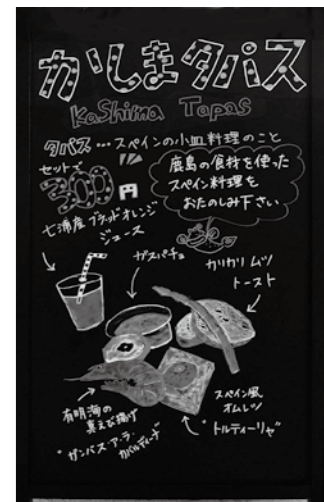 かしまタパス
Kashima Tapas
タパス…スペインの小皿料理のこと
セットで
300円
鹿島の食材を使った
スペイン料理を
おたのしみ下さい
七浦産ブラッドオレンジ
ジュース
ガスパチョ
カリカリムツ
トースト
有明海の
真えび揚げ
"ガンバス・ア・ラ・
ガバルディーナ"
スペイン風
オムレツ
"トルティーリャ"